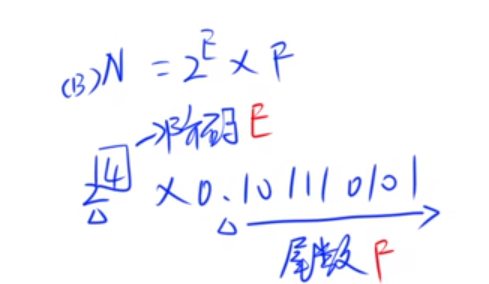 (B)N = 2^E × F
→阶码 E
2^4 × 0.101110101
尾数 F